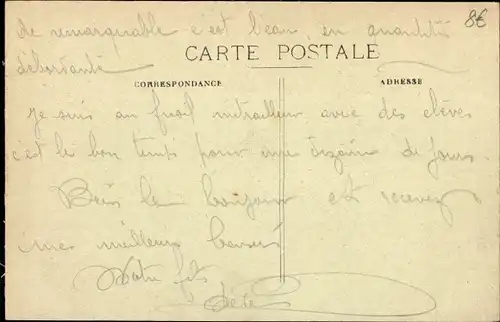 de remarquable c'est l'eau, en quantité
8€
CARTE POSTALE
débordante
CORRESPONDANCE
ADRESSE
Je suis au fusil mitrailleur avec des élèves
c'est le bon temps pour une dizaine de jours
Bien le bonjour et recevez
mes meilleurs baisers
Votre fils